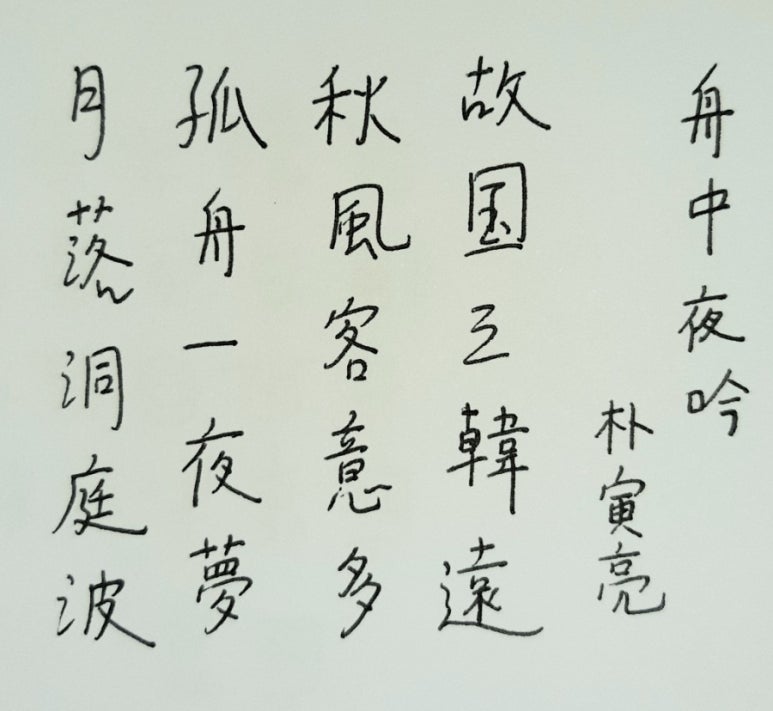 舟中夜吟
朴寅亮
故国三韓遠
秋風客意多
孤舟一夜夢
月落洞庭波